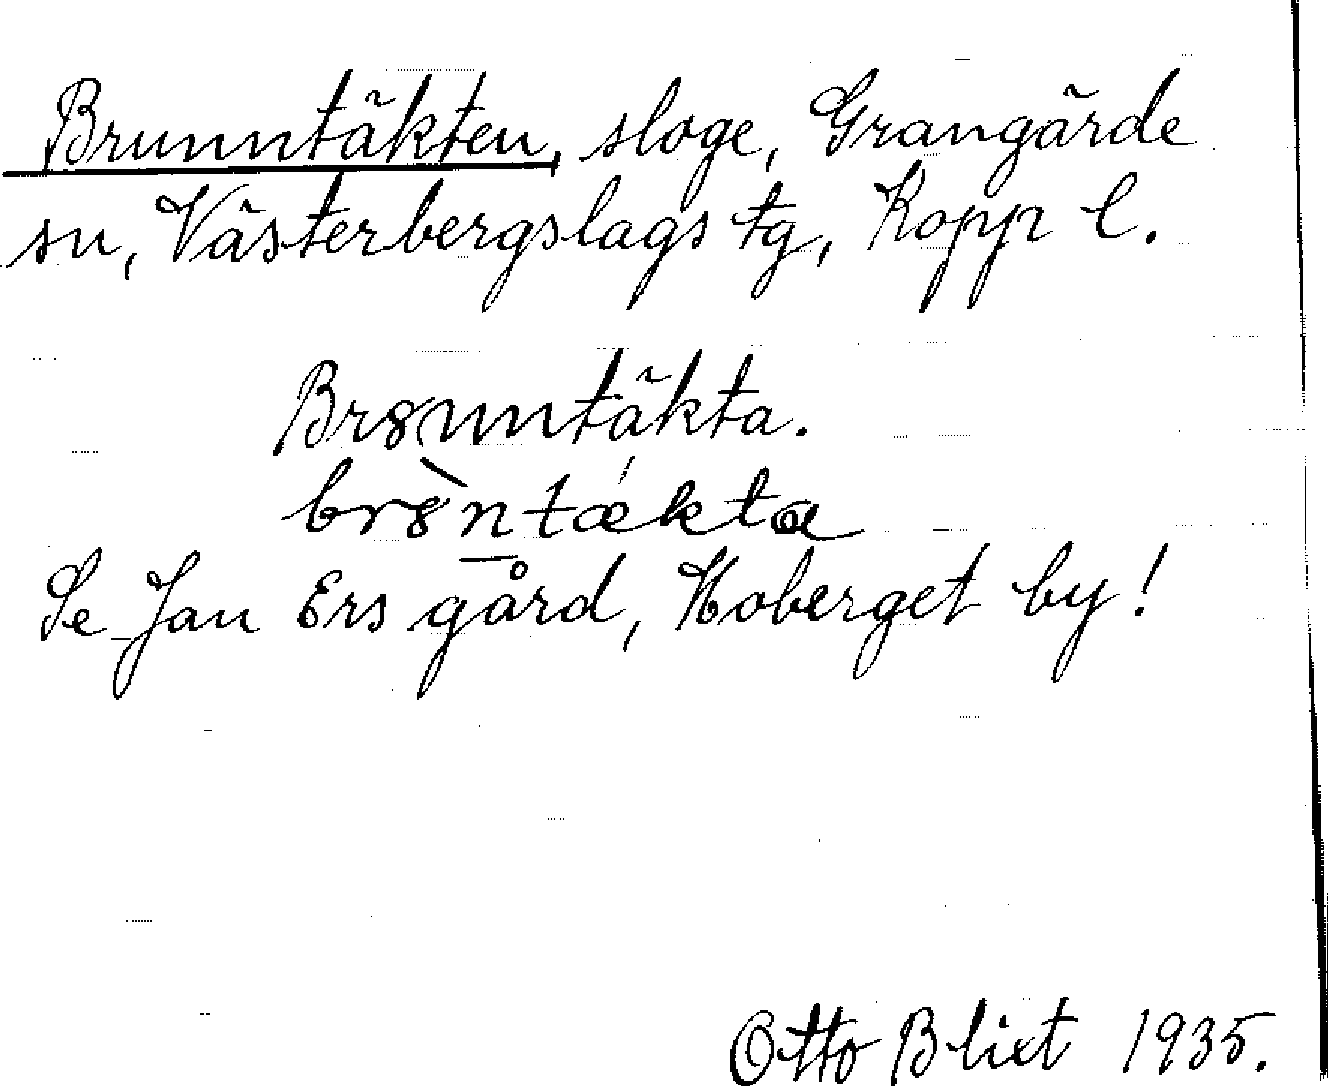 Brunntäkten, sloge, Grangärde
sn, Västerbergslags tg, Kopp l.
Brȣnntäkta.
brȣ̀ntǽkta
Se Jan Ers gård, Hoberget by!
Otto Blixt 1935.